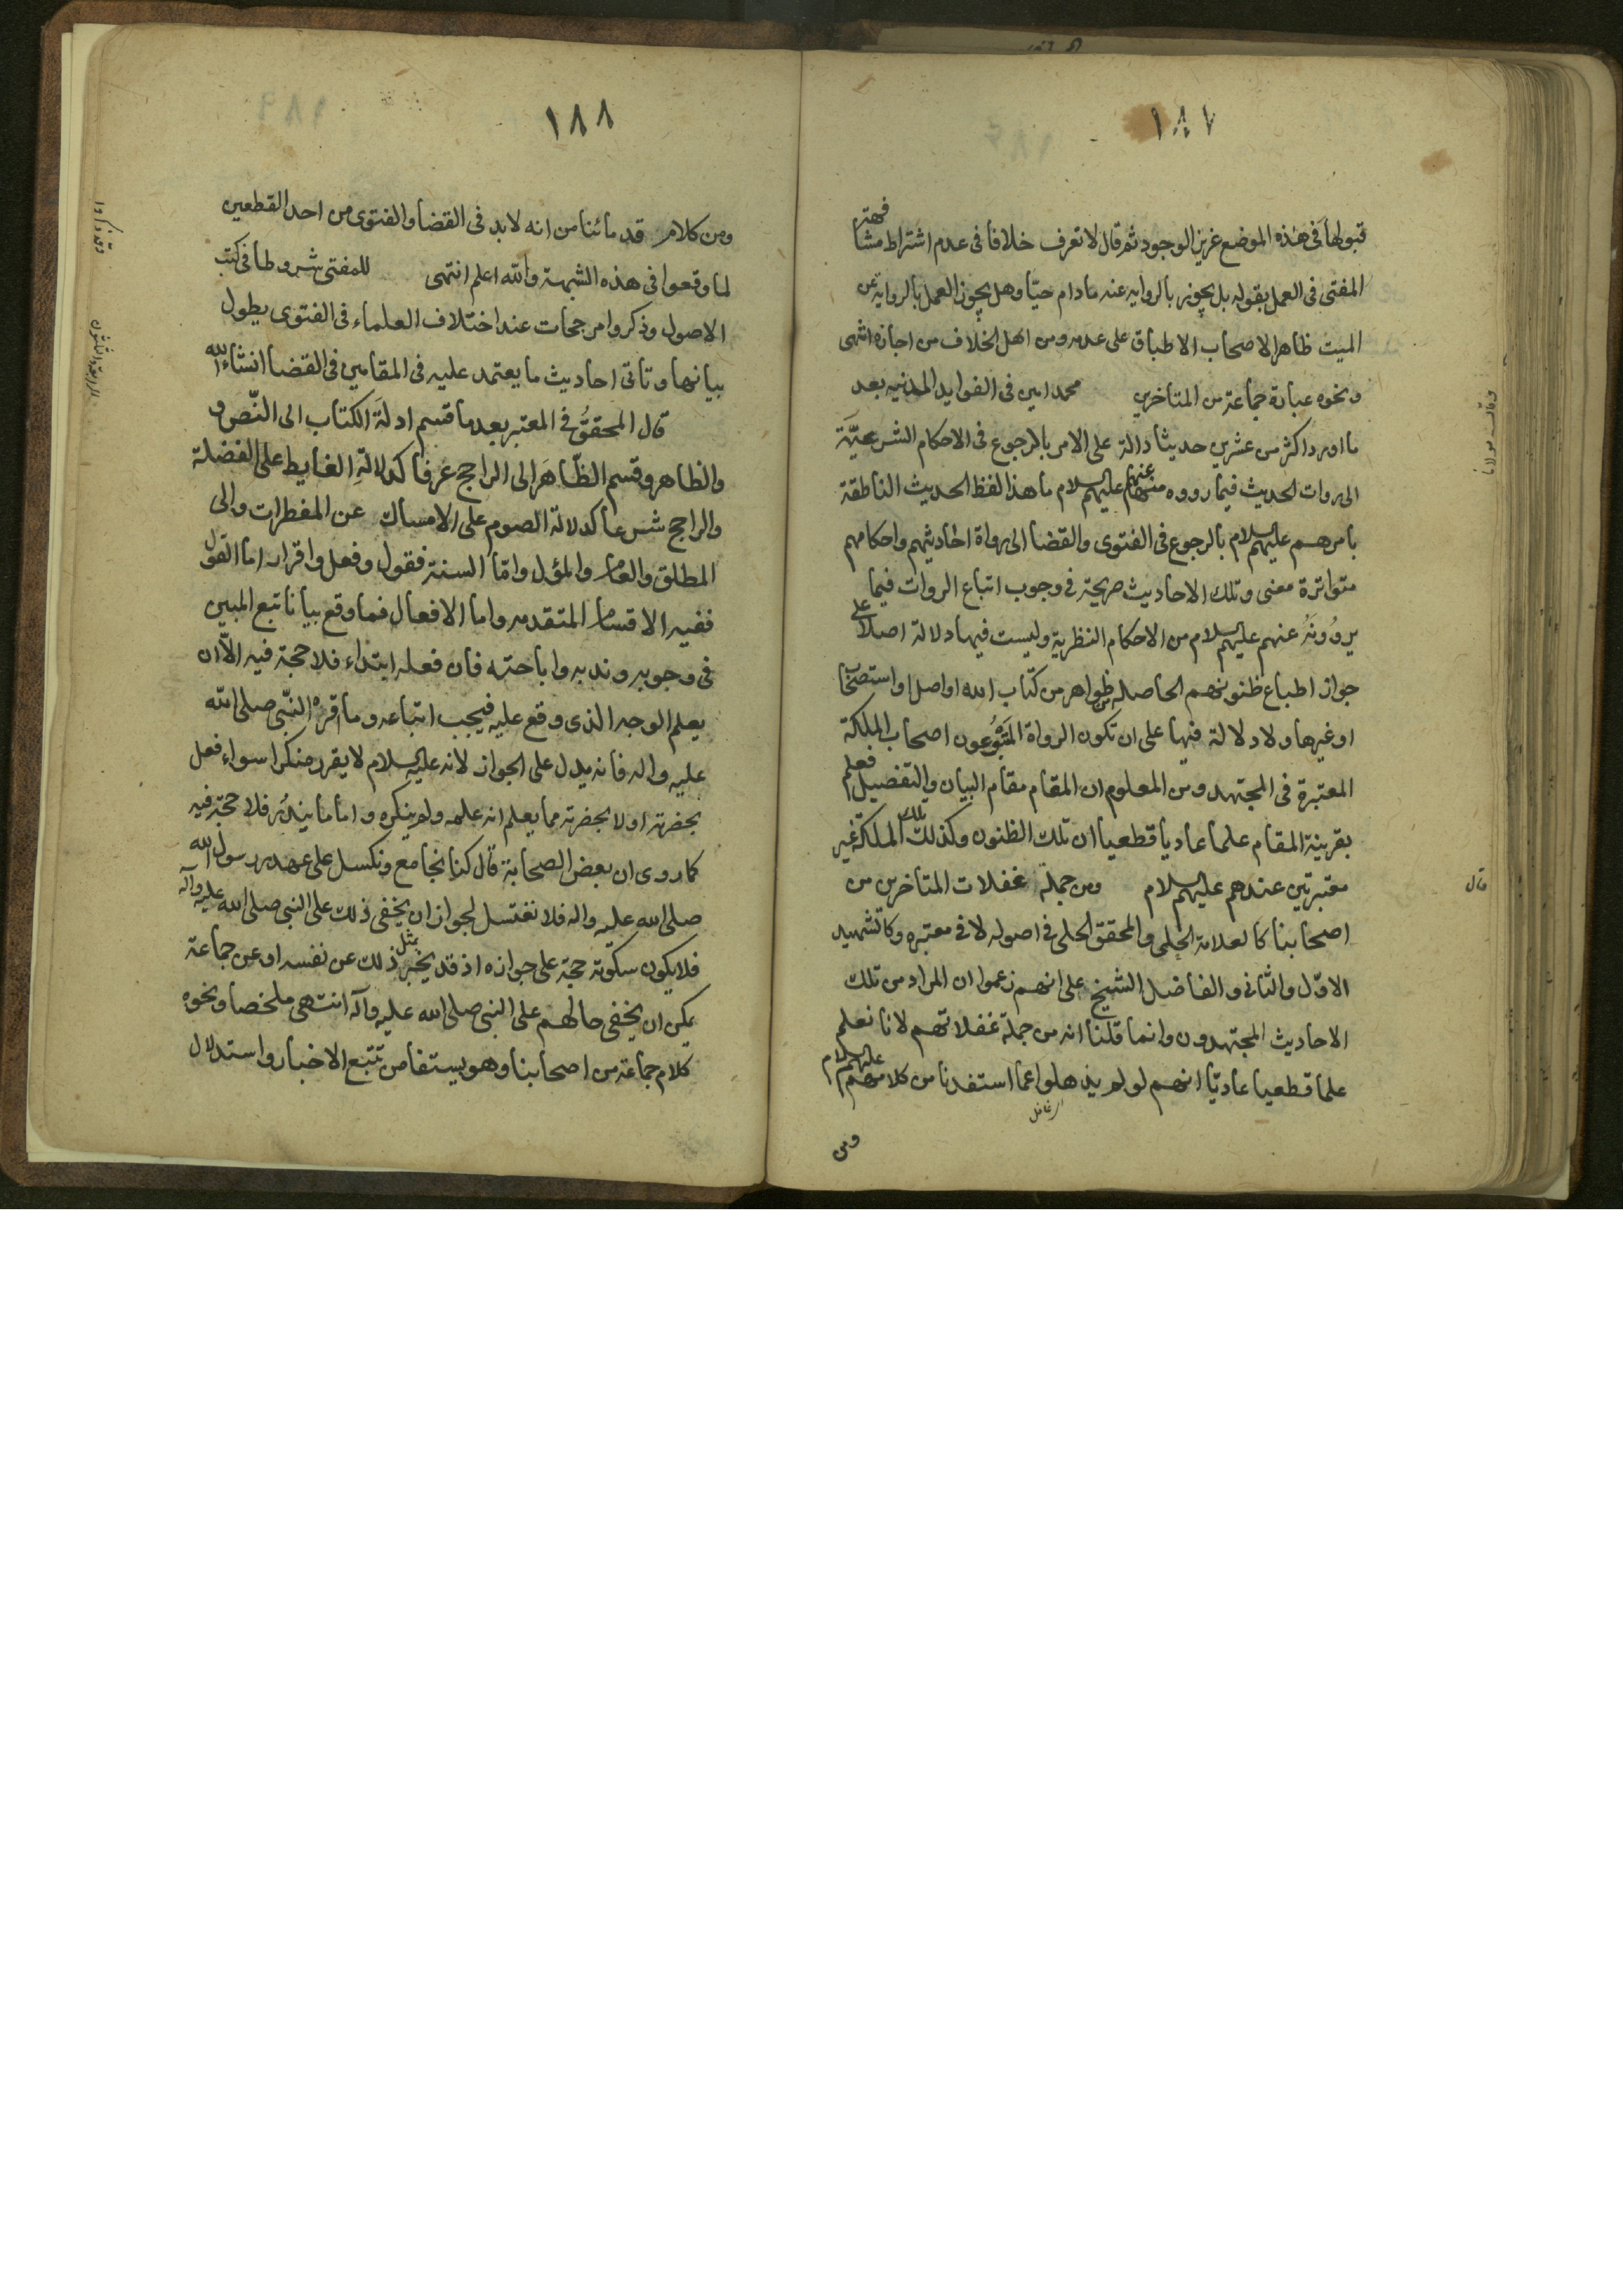 ١٨٧
قبولها فى هذه الموضع عزيز الوجود ثم قال لا تعرف خلافا فى عدم اشتراط مشافهته
المفتى فى العمل بقوله بل يجوز بالرواية عنه مادام حيّا وهل يجوز العمل بالرواية عن
الميت ظاهر الاصحاب الاطباق على عدمه ومن اهل الخلاف من اجازه انتهى
ونحوه عبارة جماعة من المتاخرين محمد امين فى الفوايد المدنيه بعد
ما اورد اكثر من عشرين حديثا دالة على الامر بالرجوع فى الاحكام الشرعيّة
الى روات الحديث فيما رووه عنهم عليهم السلام ما هذا لفظ الحديث الناطقة
بامرهم عليهم السلام بالرجوع فى الفتوى والقضا الى رواة احاديثهم واحكامهم
متواترة معنى وتلك الاحاديث صريحة فى وجوب اتباع الروات فيما
يروونه عنهم عليهم السلام من الاحكام النظرية وليست فيها دلالة اصلا على
جواز اطباع ظنونهم الحاصله من ظواهر من كتاب الله او اصل او استصحاب
او غيرها ولا دلالة فيها على ان تكون الرواة المتبوعون اصحاب الملكة
المعتبرة فى المجتهد ومن المعلوم ان المقام مقام البيان والتفصيل فعلم
بقرينة المقام علما عاديا قطعيا ان تلك الظنون وكذلك تلك الملكة غير
معتبرتين عندهم عليهم السلام ومن جملة غفلات المتاخرين من
اصحابنا كالعلامة الحلى والمحقق الحلى فى اصوله لا فى معتبره وكالشهيد
الاوّل والثانى والفاضل الشيخ على انهم زعموا ان المراد من تلك
الاحاديث المجتهدون وانما قلنا انه من جملة غفلاتهم لانا نعلم
علما قطعيا عاديّا انهم لو لم يذهلوا عما استفدنا من كلامهم عليهم السلام
ومن
وقال مولانا
قال
١٨٨
ومن كلام قدمائنا من انه لا بد فى القضا والفتوى من احد القطعين
لما وقعوا فى هذه الشبهة والله اعلم انتهى للمفتى شروطا فى كتب
الاصول وذكروا مرجحات عند اختلاف العلماء فى الفتوى يطول
بيانها وتاتى احاديث ما يعتمد عليه فى المقامين فى القضا انشاء الله
قال المحقق فى المعتبر بعد ما قسم ادلة الكتاب الى النّص و
والظاهر وقسم الظّاهر الى الراجح عرفا كدلالة الغايط على الفضلة
والراجح شرعا كدلالة الصوم على الامساك عن المفطرات والى
المطلق والعام والمؤل وامّا السنة فقول وفعل واقرار اما القول
ففيه الاقسام المتقدمه واما الافعال فما وقع بيانا تبع المبين
فى وجوبه وندبه واباحته فان فعله ابتداء فلا حجة فيه الّا ان
يعلم الوجه الذى وقع عليه فيجب اتباعه وما اقره النّبى صلى الله
عليه واله فانه يدل على الجواز لانه عليه السلام لا يقرر منكرا سواء فعل
بحضرته او لا بحضرته مما يعلم انه علمه ولم ينكره واما ما يندر فلا حجّة فيه
كما روى ان بعض الصحابة قال كنا نجامع ونكسل على عهد رسول الله
صلى الله عليه واله فلا نغتسل لجواز ان يخفى ذلك على النبى صلى الله عليه وآله
فلا يكون سكوته حجة على جوازه اذ قد يخبر بمثل ذلك عن نفسه او عن جماعة
يمكن ان يخفى حالهم على النبى صلى الله عليه وآله انتهى ملخصا ونحوه
كلام جماعة من اصحابنا وهو يستفا من تتبع الاخبار واستدلال
وقد ذكروا
الرابعة والثلثون